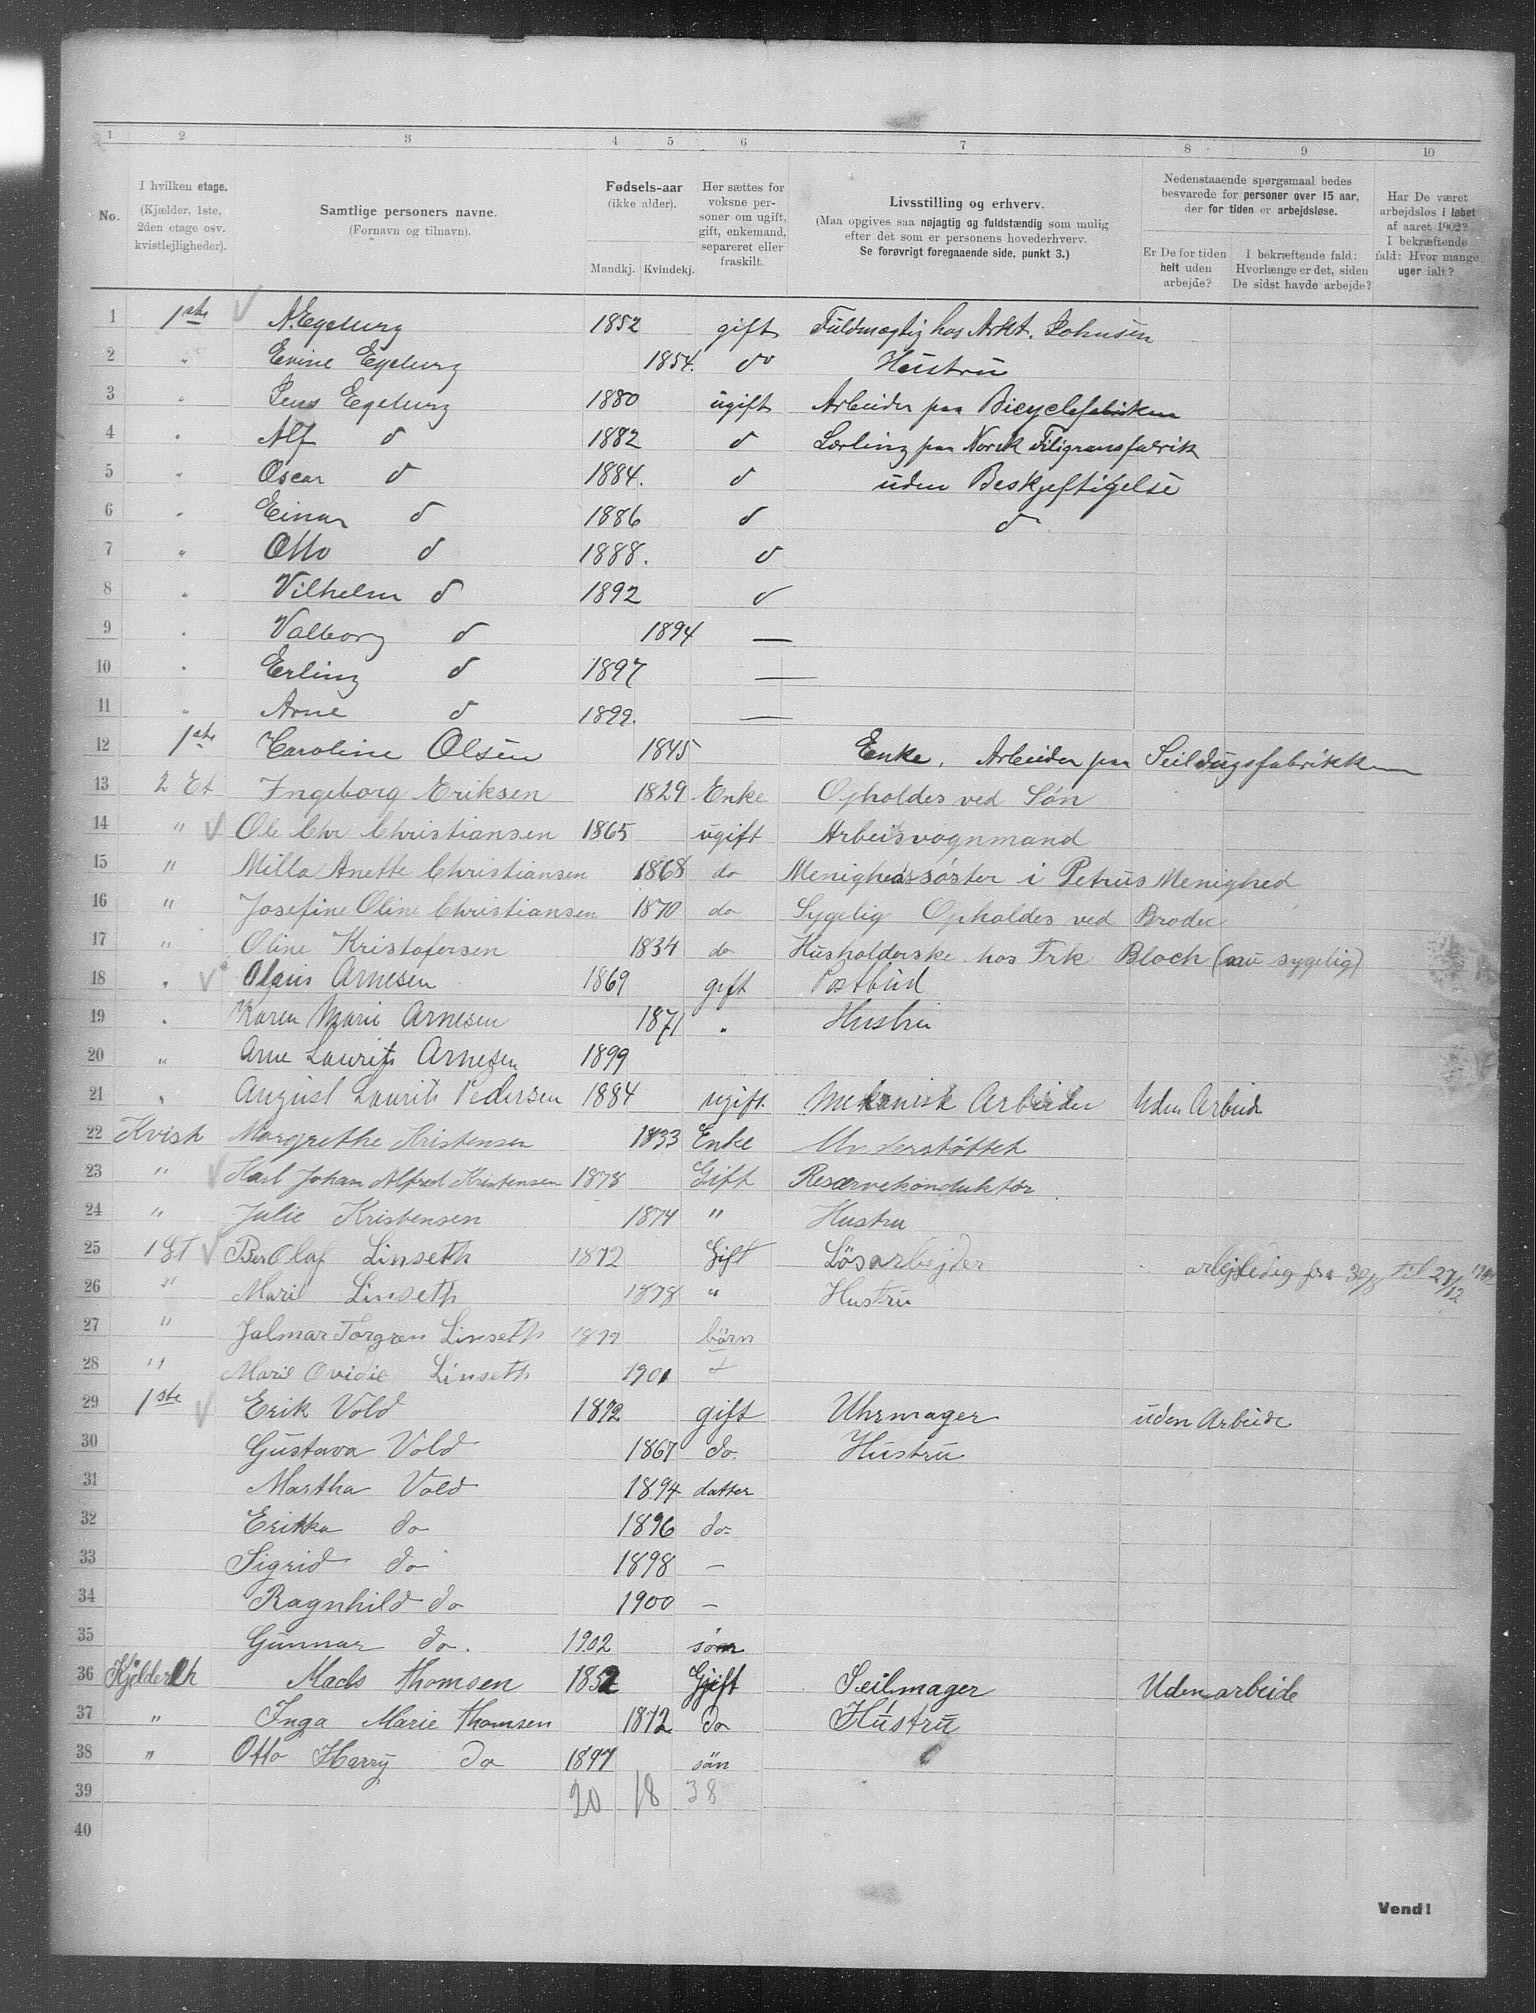 1 2 3 4 5 6 7 8 9 10
No.
I hvilken etage.
(Kjælder, 1ste,
2den etage osv.
kvistlejligheder).
Samtlige personers navne.
(Fornavn og tilnavn).
Fødsels-aar
(ikke alder).
Mandkj. Kvindekj.
Her sættes for
voksne per-
soner om ugift,
gift, enkemand,
separeret eller
fraskilt.
Livsstilling og erhverv.
(Maa opgives saa nøjagtig og fuldstændig som mulig
efter det som er personens hovederhverv.
Se forøvrigt foregaaende side, punkt 3.)
Nedenstaaende spørgsmaal bedes
besvarede for personer over 15 aar,
der for tiden er arbejdsløse.
Er De for tiden
helt uden
arbejde?
I bekræftende fald:
Hvorlænge er det, siden
De sidst havde arbejde?
Har De været
arbejdsløs i løbet
af aaret 1902?
I bekræftende
fald: Hvor mange
uger ialt?
1 1ste N. Egeberg 1852 gift Fuldmægtig hos Arkt. Johnsen
2 " Evine Egeberg 1854. do Hustru
3 " Jens Egeberg 1880 ugift Arbeider paa Bicyclefabriken
4 " Alf d 1882 d Lærling paa Norsk Filigransfabrik
5 " Oscar d 1884. d uden Beskjeftigelse
6 " Einar d 1886 d d
7 " Otto d 1888. d
8 " Vilhelm d 1892 d
9 " Valborg d 1894 —
10 " Erling d 1897 —
11 " Arne d 1899. —
12 1ste Caroline Olsen 1845 Enke. Arbeider paa Seildugsfabrikken
13 2 Et Ingeborg Eriksen 1829 Enke Opholdes ved Søn
14 " Ole Chr Christiansen 1865 ugift Arbeisvognmand
15 " Milla Anette Christiansen 1868 do Menighedssøster i Petrus Menighed
16 " Josefine Oline Christiansen 1870 do Sygelig Opholdes ved Broder
17 " Oline Kristofersen 1834 do Husholderske hos Frk Bloch (nu sygelig)
18 " Olaus Arnesen 1869 gift Postbud
19 " Karen Marie Arnesen 1871 " Hustru
20 " Arne Laurits Arnesen 1899
21 " August Laurits Pedersen 1884 ugift. Mekanisk Arbeider Uden Arbeide
22 Kvist Margrethe Kristensen 1833 Enke Understøttet
23 " Karl Johan Alfred Kristensen 1878 Gift Reservekonduktør
24 " Julie Kristensen 1874 " Hustru
25 1 Et Per Olaf Linseth 1872 Gift Løsarbejder arbejdledig fra 30/8 til 27/12
26 " Marie Linseth 1878 " Hustru
27 " Jalmar Torgren Linseth 1899 børn
28 " Marie Ovidie Linseth 1901
29 1ste Erik Vold 1872 gift Uhrmager uden Arbeide
30 Gustava Vold 1867 do. Hustru
31 Martha Vold 1894 datter
32 Erikka do 1896 do
33 Sigrid do 1898 —
34 Ragnhild do 1900 —
35 Gunnar do. 1902 søn
36 Kjelder Mads Thomsen 1852 Gift Seilmager Uden arbeide
37 " Inga Marie Thomsen 1872 do Hustru
38 " Otto Harry do 1897 søn
39 20 18 38
40
Vend!